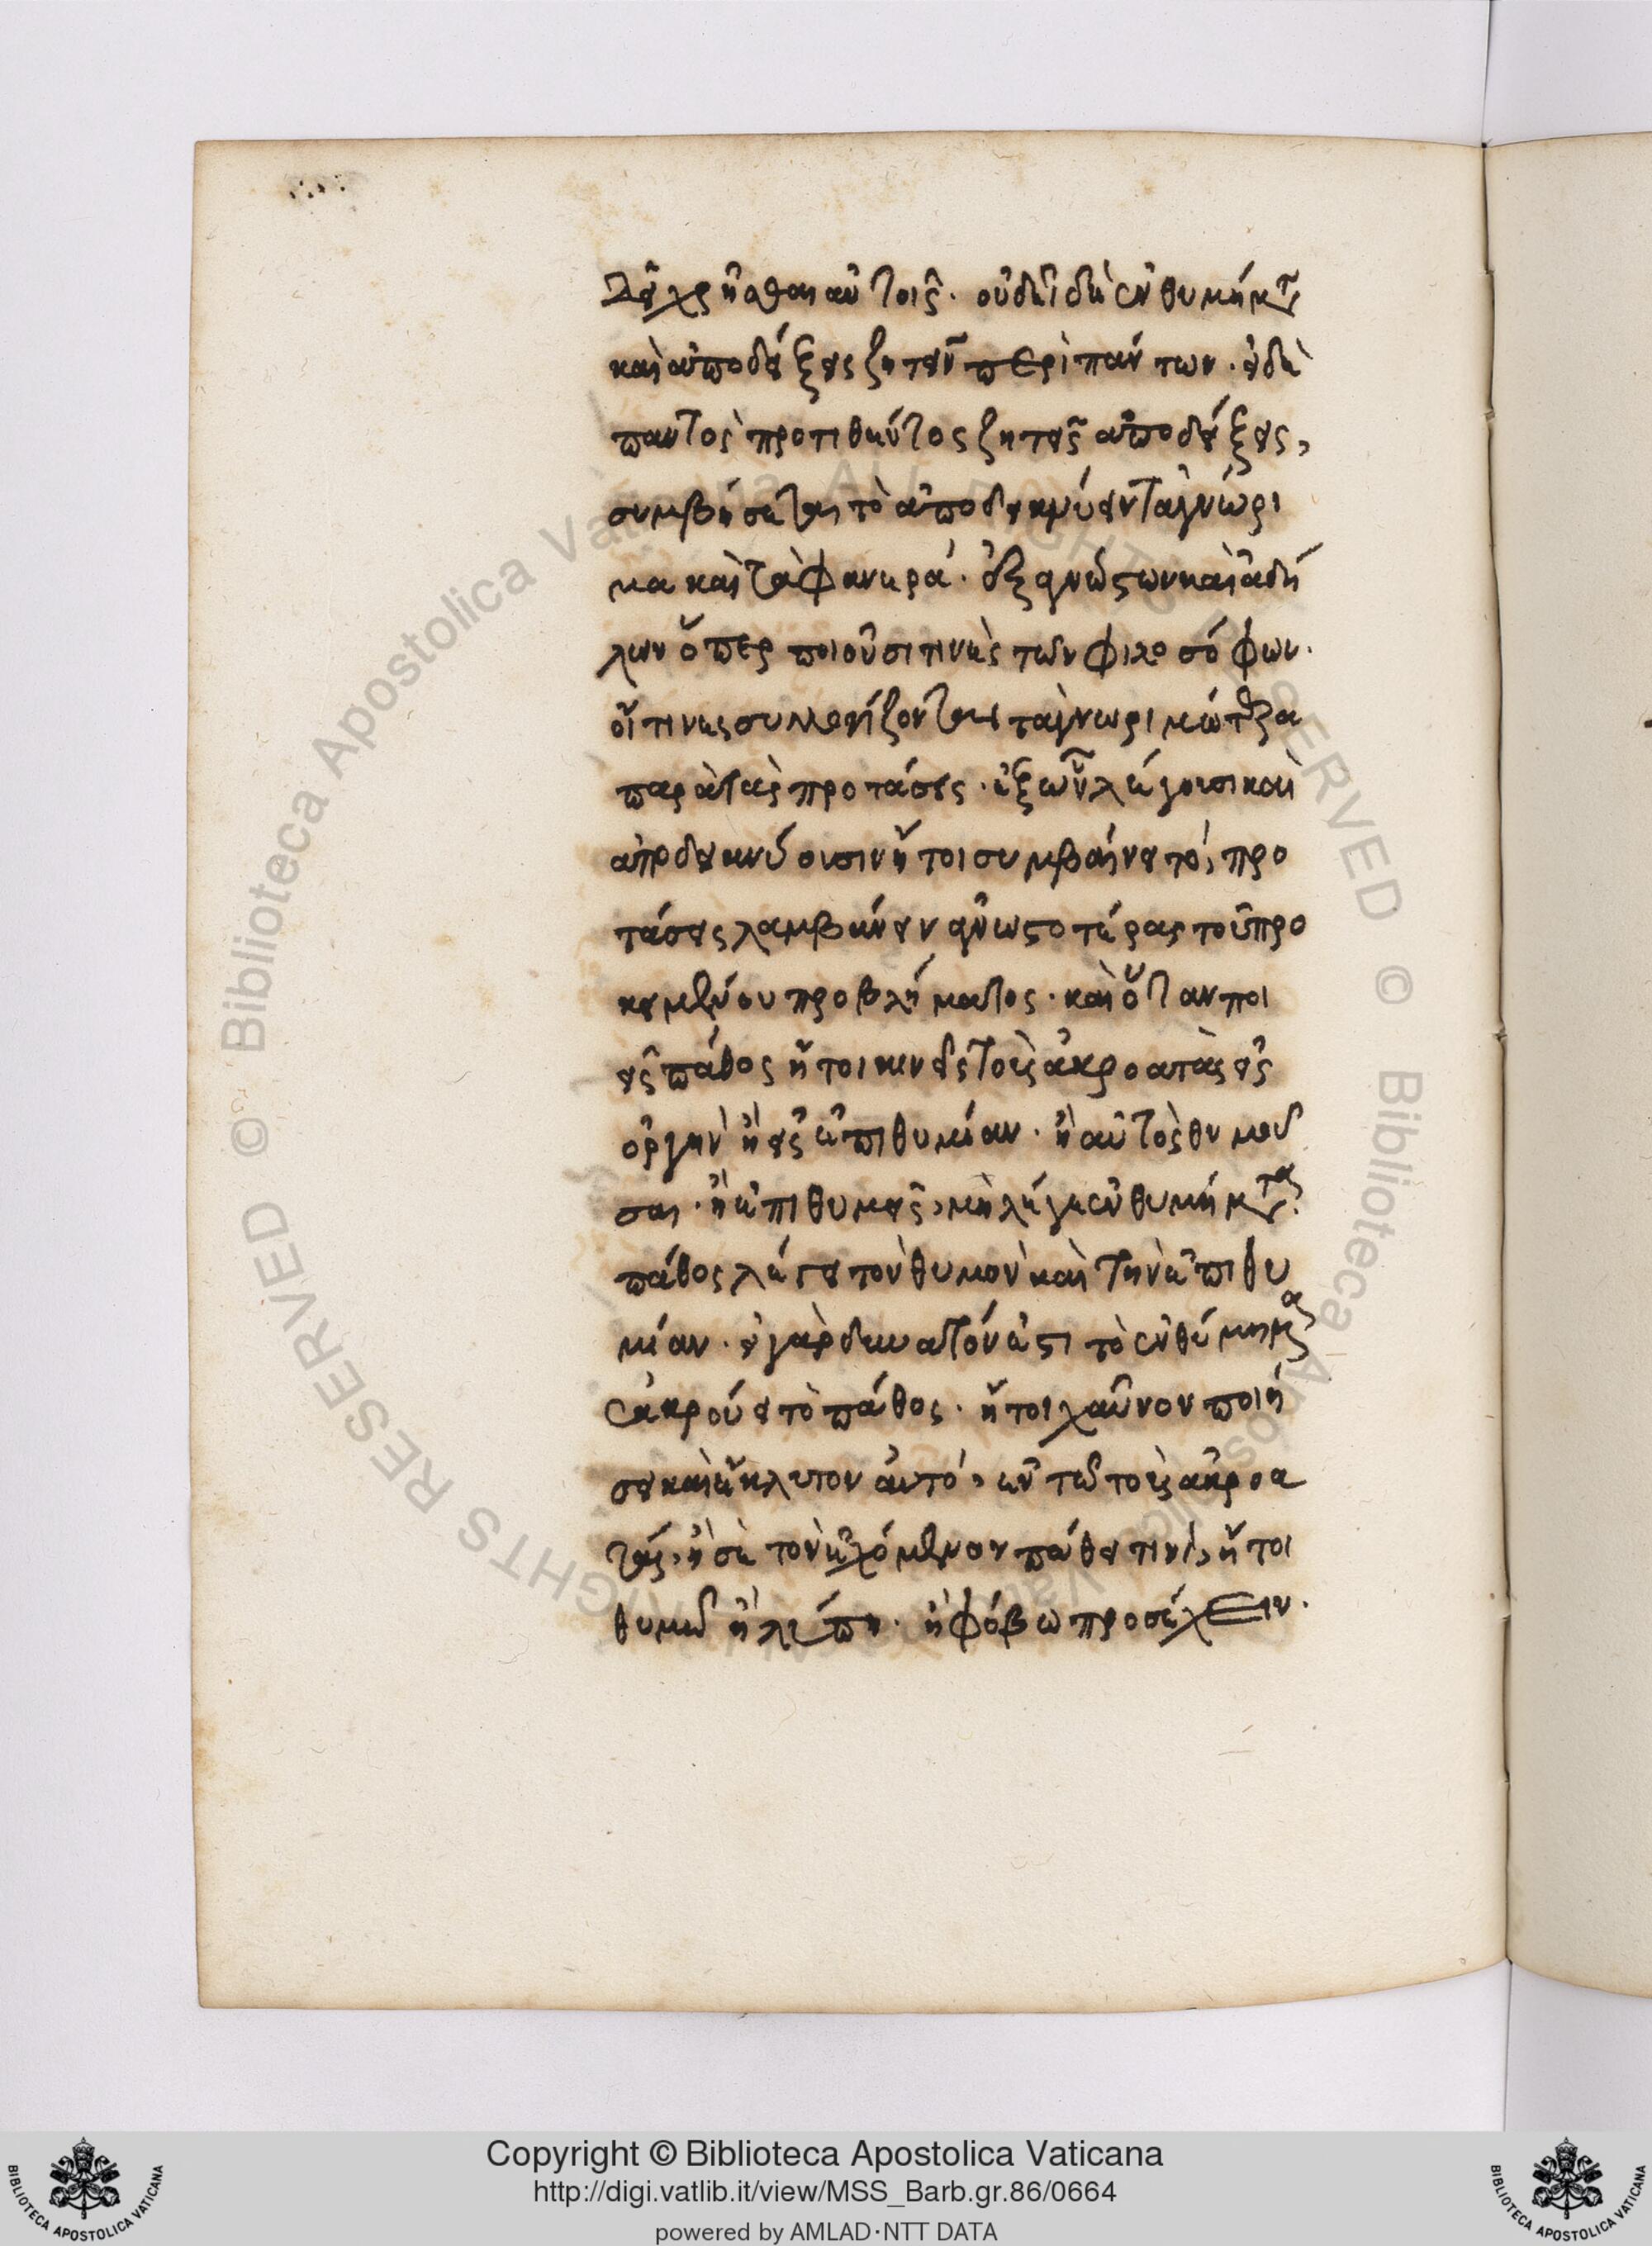 δεῖ χρῆσθαι αὐτοῖς· οὐ δεῖ δὲ ἐνθυμήματα
καὶ ἀποδείξεις ζητεῖν περὶ πάντων· εἰ δὲ
παντὸς προτιθέντος ζητεῖς ἀποδείξεις,
συμβήσεται τὸ ἀποδεικνύειν τὰ γνώρι
μα καὶ τὰ φανερά· ἐξ ἀγνώστων καὶ ἀδή
λων ὅπερ ποιοῦσι τινὲς τῶν φιλοσόφων·
οἵ τινες συλλογίζονται τὰ γνωριμώτερα
παρὰ τὰς προτάσεις· ἐξ ὧν λέγουσι καὶ
ἀποδεικνύουσιν ἤτοι συμβαίνει τὸ, προ
τάσεις λαμβάνειν ἀγνωστοτέρας τοῦ προ
κειμένου προβλήματος· καὶ ὅταν ποι
εῖς πάθος ἤτοι κινεῖς τοὺς ἀκροατὰς εἰς
ὀργὴν ἢ εἰς ἐπιθυμίαν· ἢ αὐτὸς θυμοῦ
σαι· ἢ ἐπιθυμεῖς, μὴ λέγε ἐνθυμήματα·
πάθος λέγει τὸν θυμὸν καὶ τὴν ἐπιθυ
μίαν· εἰ γὰρ δεκατόν ἐστι τὸ ἐνθύμημα
ἐκκρούει τὸ πάθος· ἤτοι χαῦνον ποιή
σει καὶ ἔκλυτον αὐτό, ἐν τῶ τοὺς ἀκροα
τάς, ἢ σὲ τὸν ἐχόμενον πάθει τινί, ἤτοι
θυμῶ ἢ λύπη· ἢ φόβω προσέχειν·
Copyright © Biblioteca Apostolica Vaticana
http://digi.vatlib.it/view/MSS_Barb.gr.86/0664
powered by AMLAD·NTT DATA